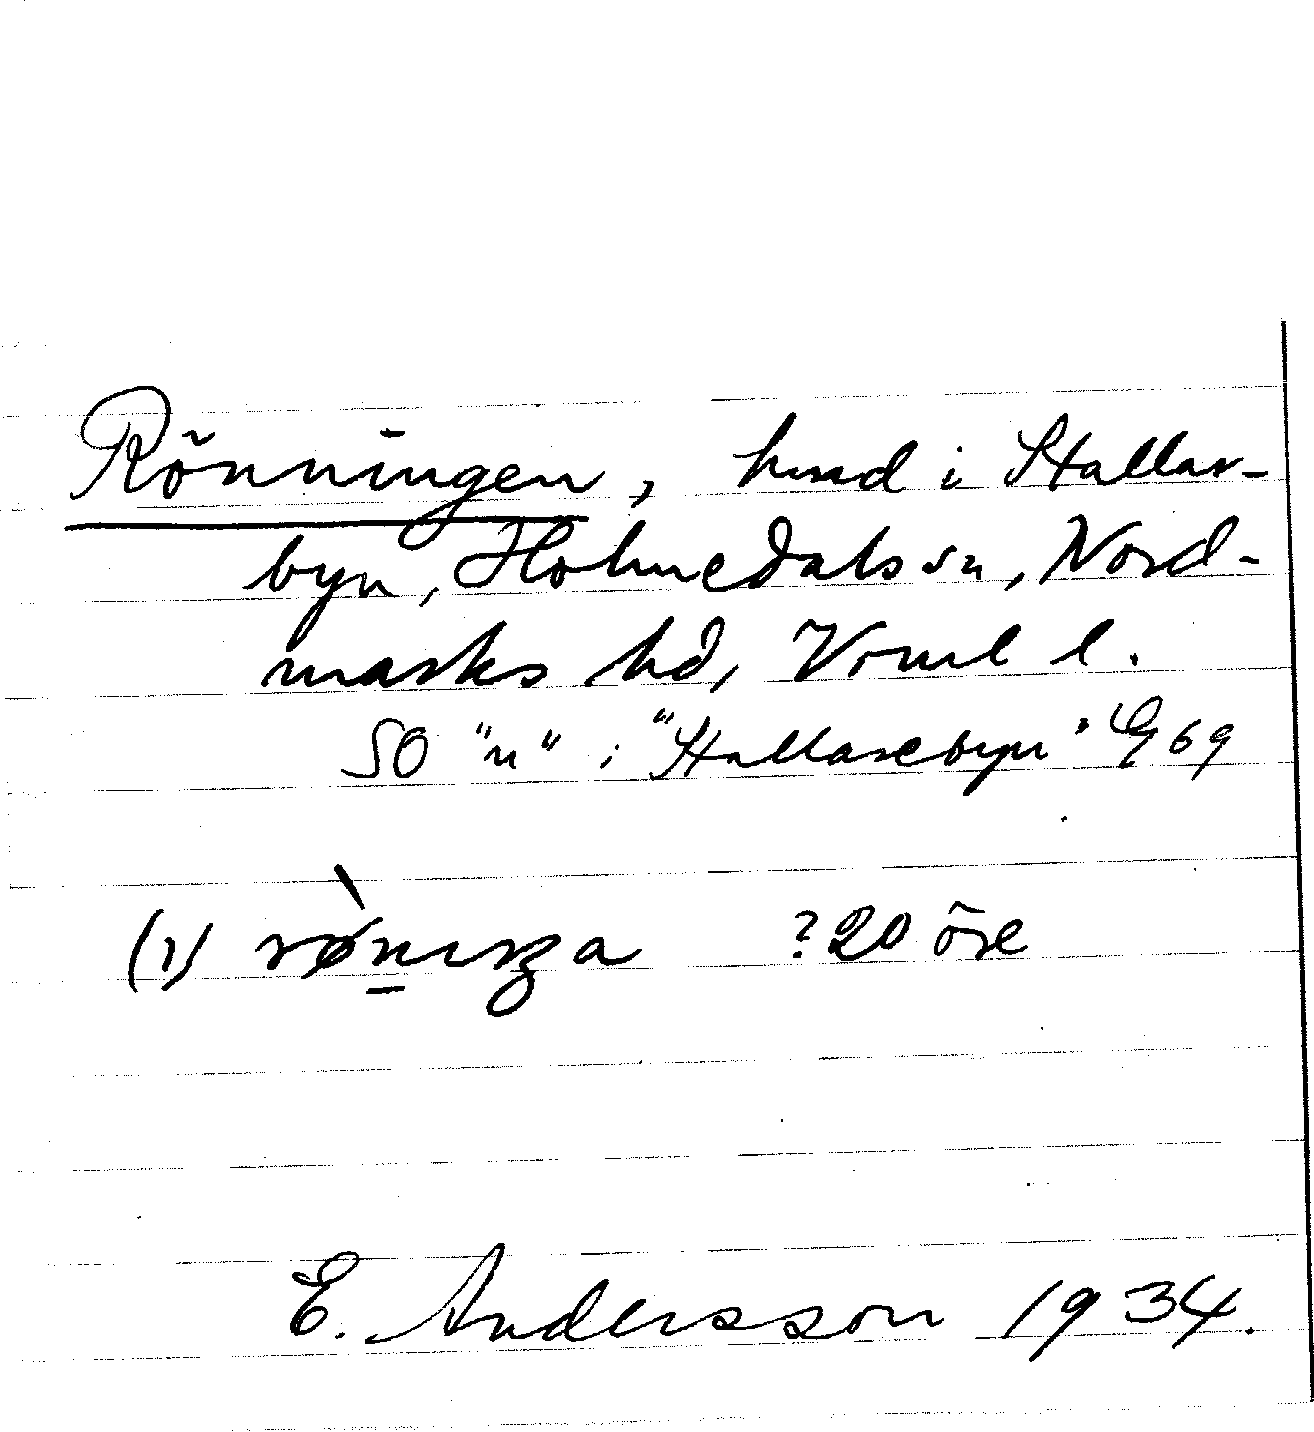 Rönningen, hmd i Stallar-
byn, Holmedals sn, Nord-
marks hd, Vrml l.
SO "n" i "Stallarebyn" E 69
(1) rø̀niŋa ?20 öre
E. Andersson 1934.